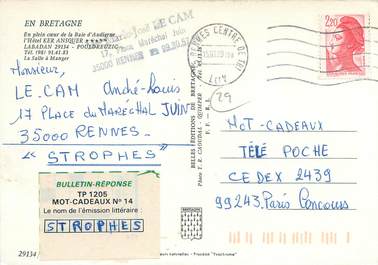 EN BRETAGNE
En plein cœur de la Baie d'Audierne
L'Hôtel KER ANSQUER
LABADAN 29134 - POULDREUZIC
Tél. (98) 91.41.83
La Salle à Manger
LE CAM
17, Place Maréchal Juin
35000 RENNES
RENNES CENTRE DE TRI
2,20
Monsieur,
LE.CAM André-Louis
17 PLACE DU MARÉCHAL JUIN
35000 RENNES-
"STROPHES"
BULLETIN-RÉPONSE
TP 1205
MOT-CADEAUX N° 14
Le nom de l'émission littéraire :
STROPHES
29134
BELLES EDITIONS DE BRETAGNE
Photo T. R. CAOUDAL - QUIMPER
29
MOT-CADEAUX
TÉLÉ POCHE
CEDEX 2439
99243, Paris Concours
BRETAGNE